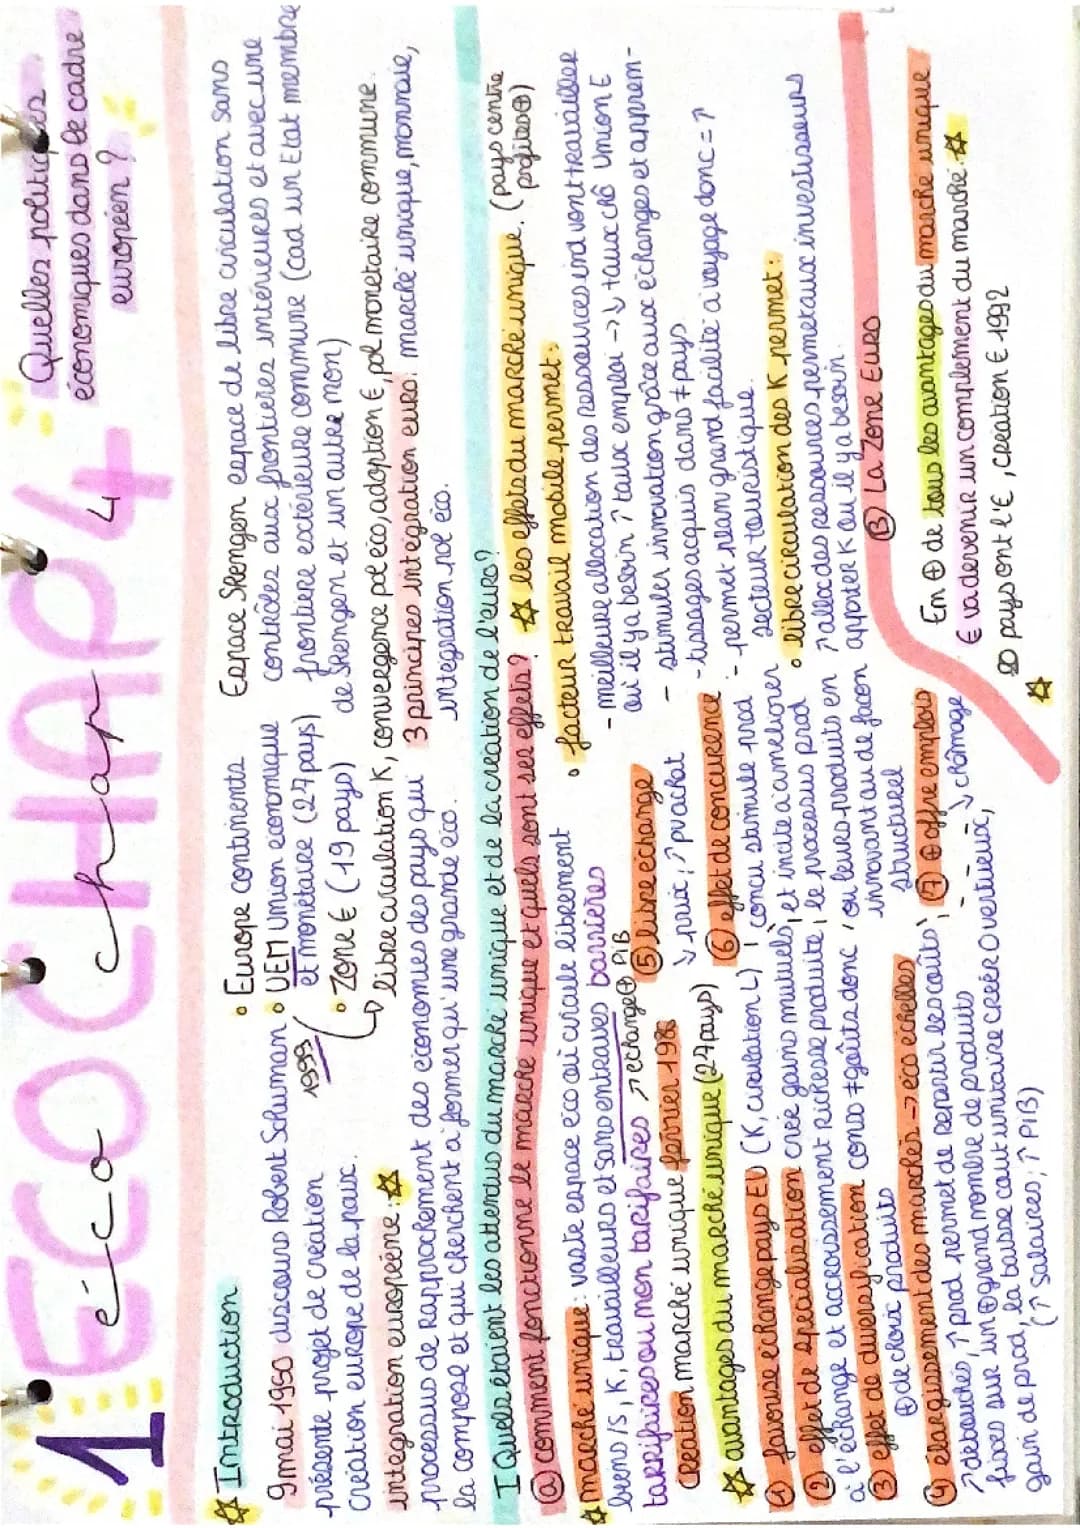 1 ECO CHAP 4
éco chap 4
Quelles politiques
économiques dans le cadre
européen ?
☆ Introduction
9 mai 1950 discours Robert Schuman
présente projet de création
création europe de la paix.
intégration européene : ☆
processus de rapprochement des économies des pays qui
la compose et qui cherchent à former qu'une grande éco.
• Europe continents
• UEM Union économique
et monétaire (27 pays)
1999
• Zone € (19 pays)
↳ libre circulation K, convergence pol éco, adoption €, pol monétaire commune.
Espace Shengen espace de libre circulation sans
contrôles aux frontières intérieures et avec une
frontière extérieure commune (cad un Etat membre
de Shengen et un autre non)
3 principes intégration euro : marché unique, monnaie,
intégration pol éco.
I Quels étaient les attendus du marché unique et de la création de l'euro ?
ⓐ comment fonctionne le marché unique et quels sont ses effets ?
☆ marché unique : vaste espace éco où circule librement
biens/S, K, travailleurs et sans entraves barrières
tarrifaires ou non tarifaires ↗ échange ⊕ PIB
Création marché unique février 1986
☆ avantages du marché unique (27 pays)
① favorise échange pays EU (K, circulation L)
② effet de spécialisation crée gains mutuels
à l'échange et accroissement richesse produite
③ effet de diversification conso ≠ goûts donc
⊕ de choix produits
④ élargissement des marchés → éco échelles
↗ débouchés, ↑ prod permet de répartir les coûts
fixes sur un ⊕ grand nombre de produits
gain de prod, la baisse coût unitaire créér O vertueux,
(↑ salaires, ↑ PIB)
⑤ libre échange
↓ prix, ↑ p achat
⑥ effet de concurence
concu stimule prod
et incite à améliorer
le processus prod
ou leurs produits en
innovant ou de façon
structurel
⑦ ⊕ offre emplois
↓ chômage
☆ les effets du marché unique. (pays centre
profites ⊕)
• facteur travail mobile permet :
- meilleure allocation des ressources ind vont travailler
où il y a besoin ↗ taux emploi → ↓ taux chô Union E
- stimuler innovation grâce aux échanges et apprem-
- tissages acquis dans ≠ pays
- permet plan grand facilité à voyage donc = ↗
secteur touristique.
• libre circulation des K permet :
↗ alloc des ressources, permet aux investisseurs
apporter K où il y a besoin.
Ⓑ La Zone Euro
En ⊕ de tous les avantages du marché unique
€ va dervenir un complément du marché. ☆
20 pays ont l'€, création € 1992
☆